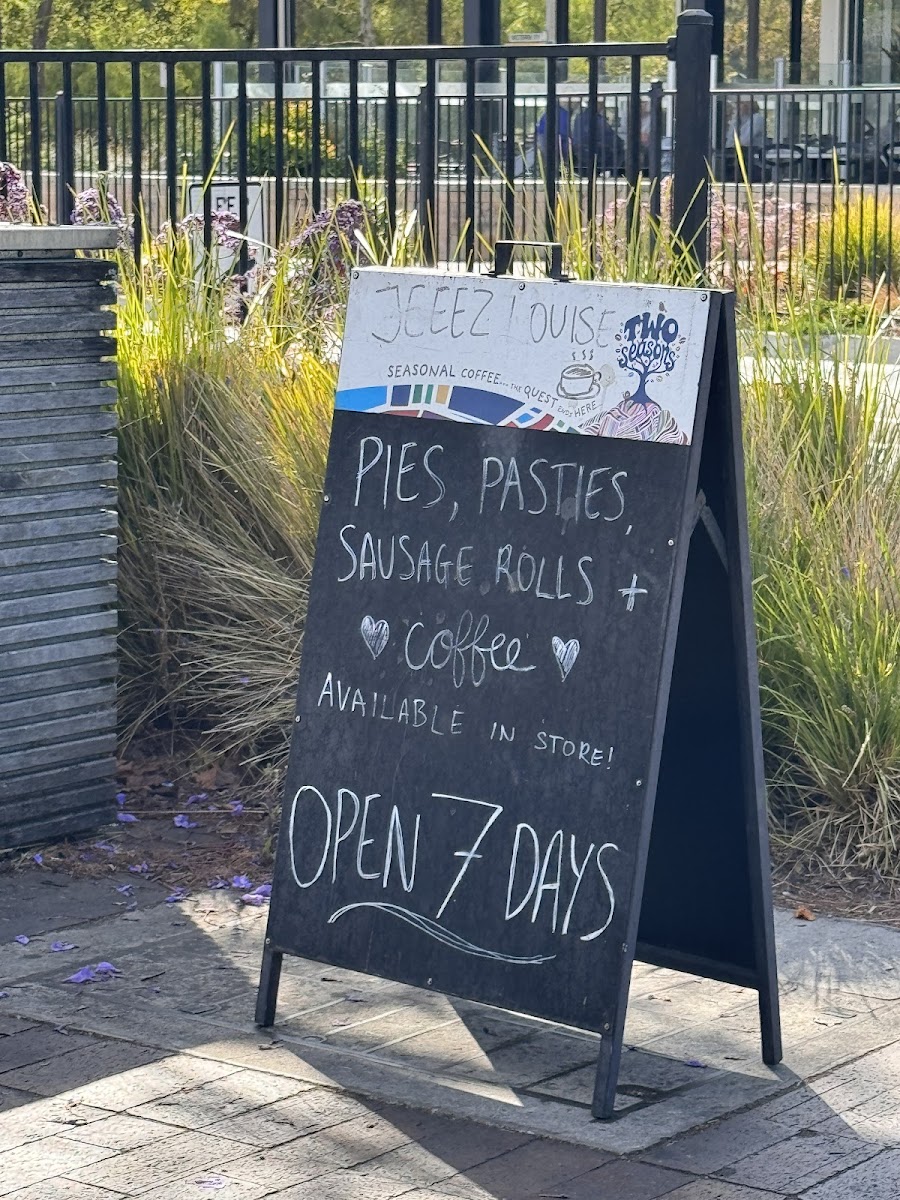 JEEEZ LOUISE
TWO
seasons
SEASONAL COFFEE... THE QUEST ENDS HERE
PIES, PASTIES,
SAUSAGE ROLLS +
coffee
AVAILABLE IN STORE!
OPEN 7 DAYS